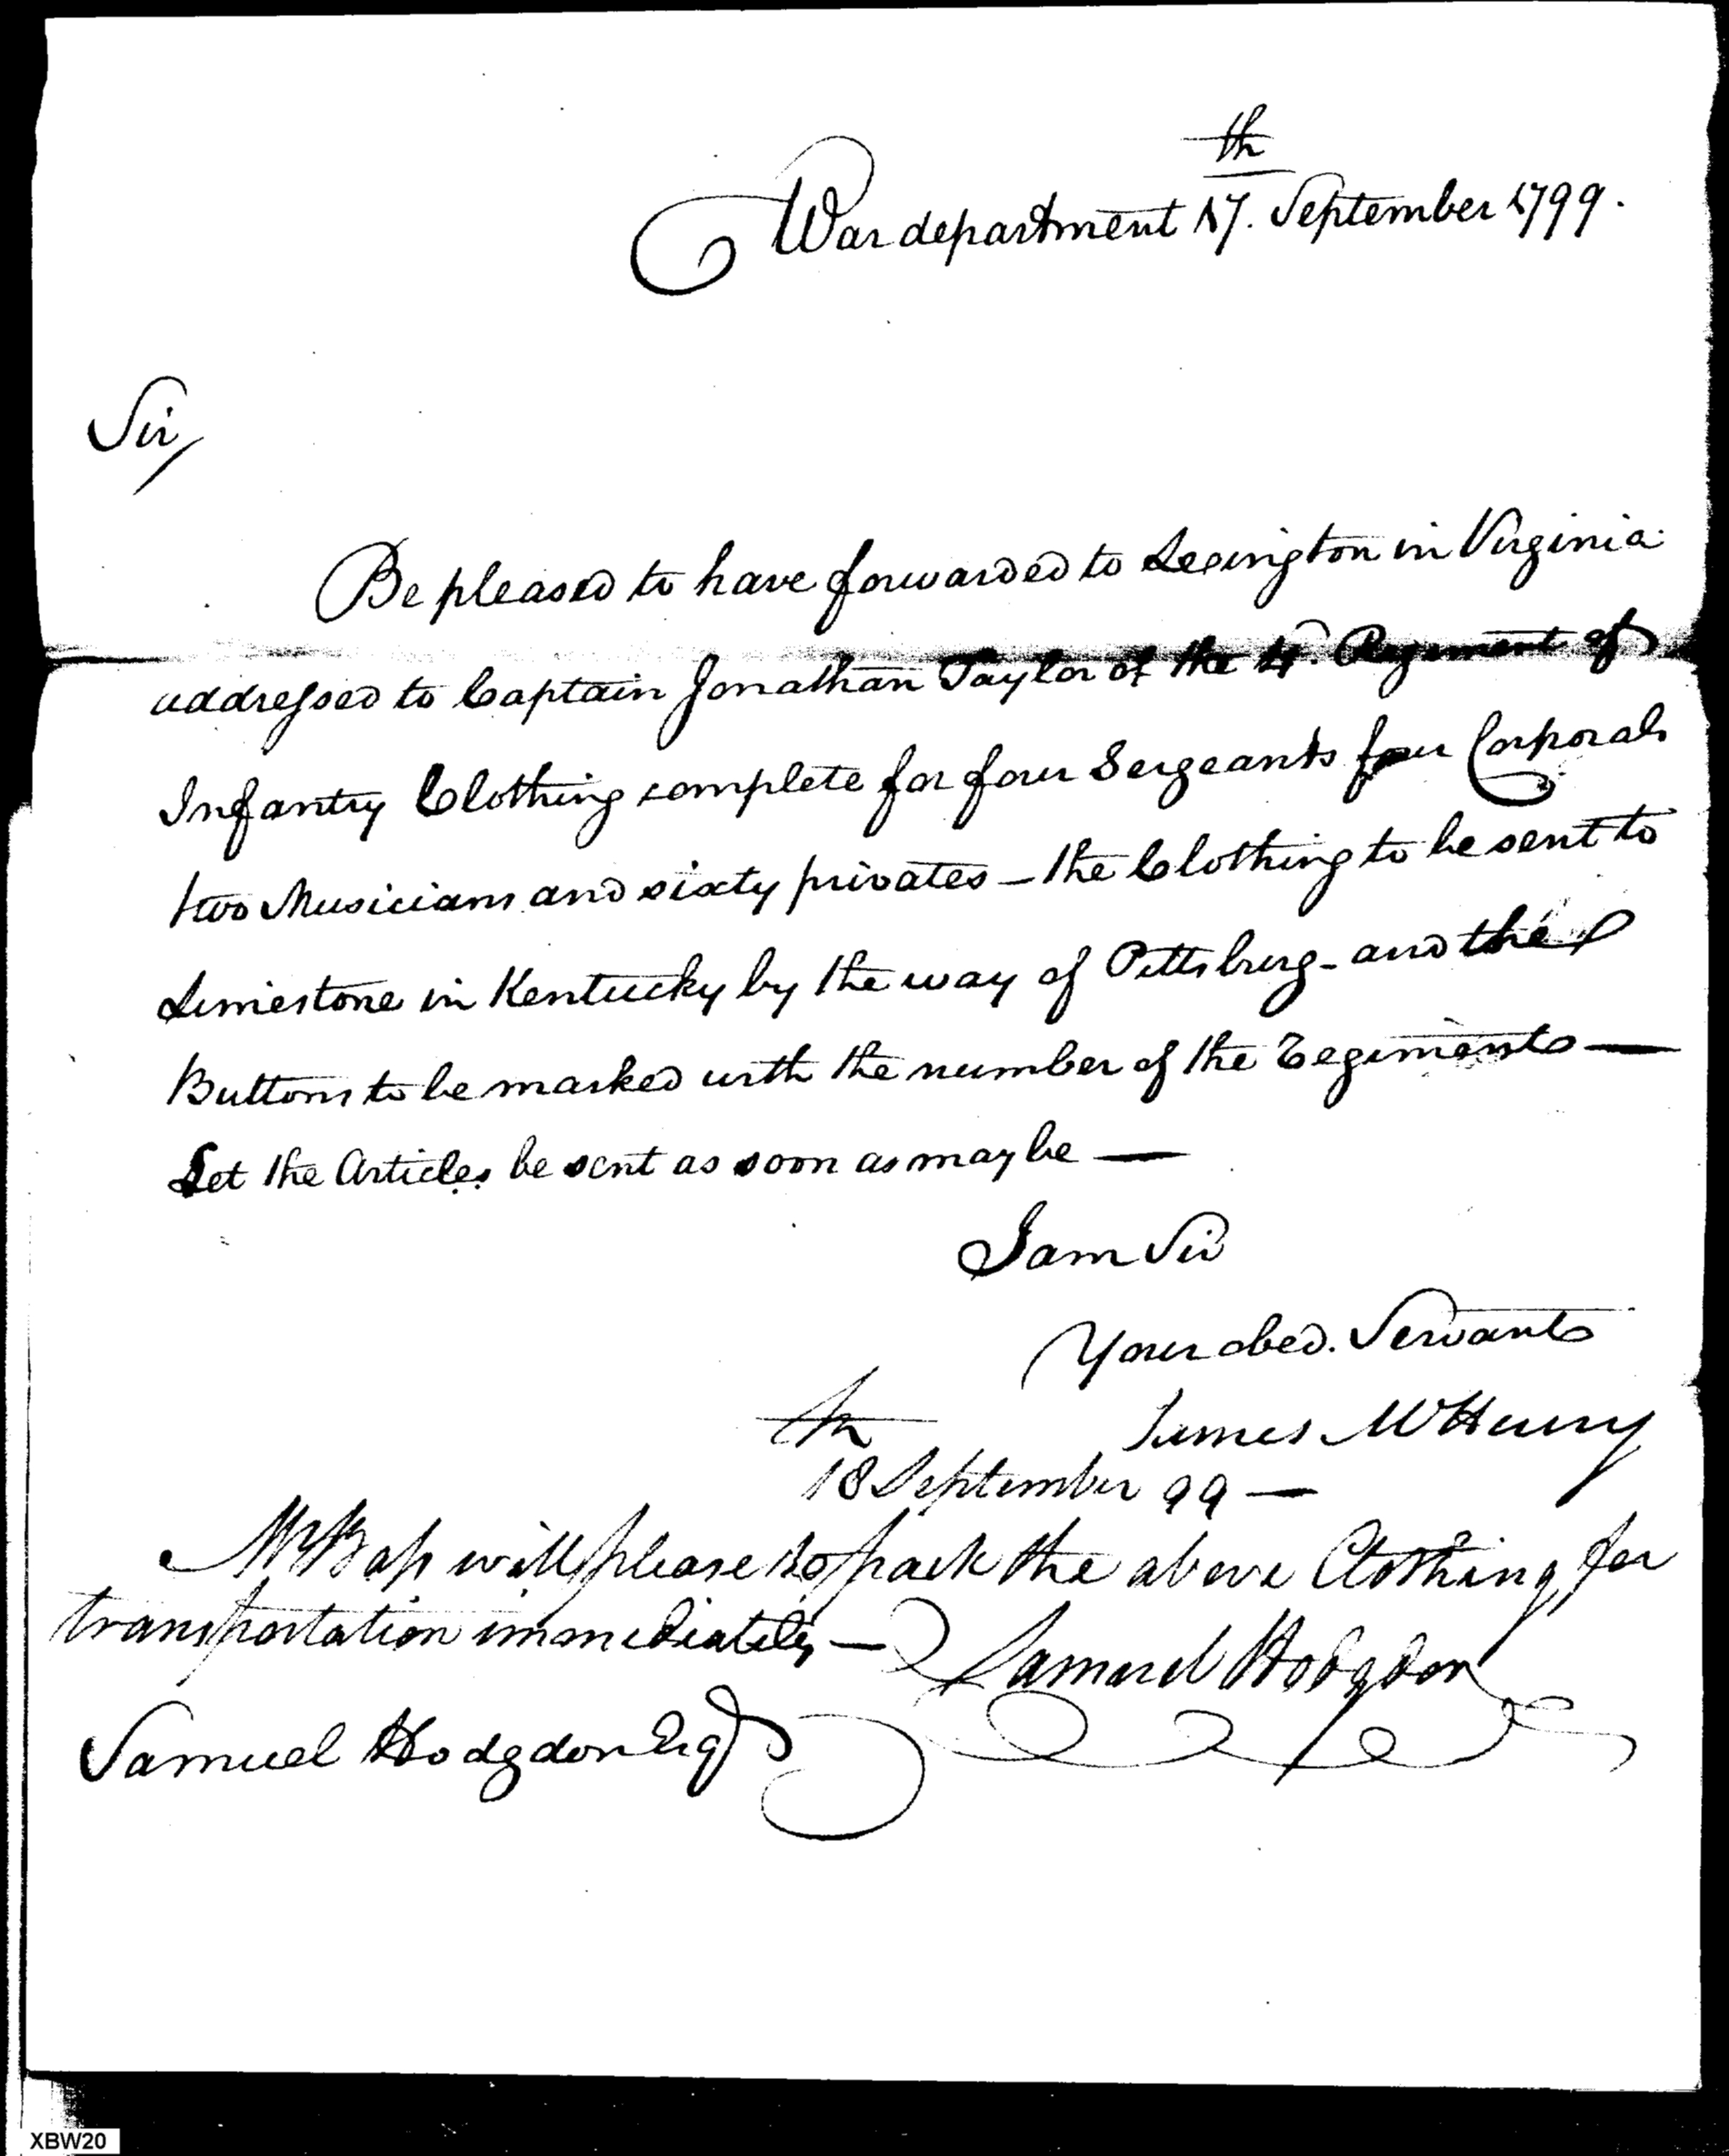 War department 17th. September 1799.
Sir,
Be pleased to have forwarded to Lexington in Virginia
addressed to Captain Jonathan Taylor of the 4. Regiment of
Infantry Clothing complete for four Sergeants four Corporals
two Musicians and sixty privates — the Clothing to be sent to
Limestone in Kentucky by the way of Pittsburg - and the
Buttons to be marked with the number of the Regiment —
Let the Articles be sent as soon as may be —
I am Sir
Your obed. Servant
James McHenry
18th September 99 —
Mr Bass will please to pack the above Clothing for
transportation immediately —
Samuel Hodgdon
Samuel Hodgdon Esq
XBW20